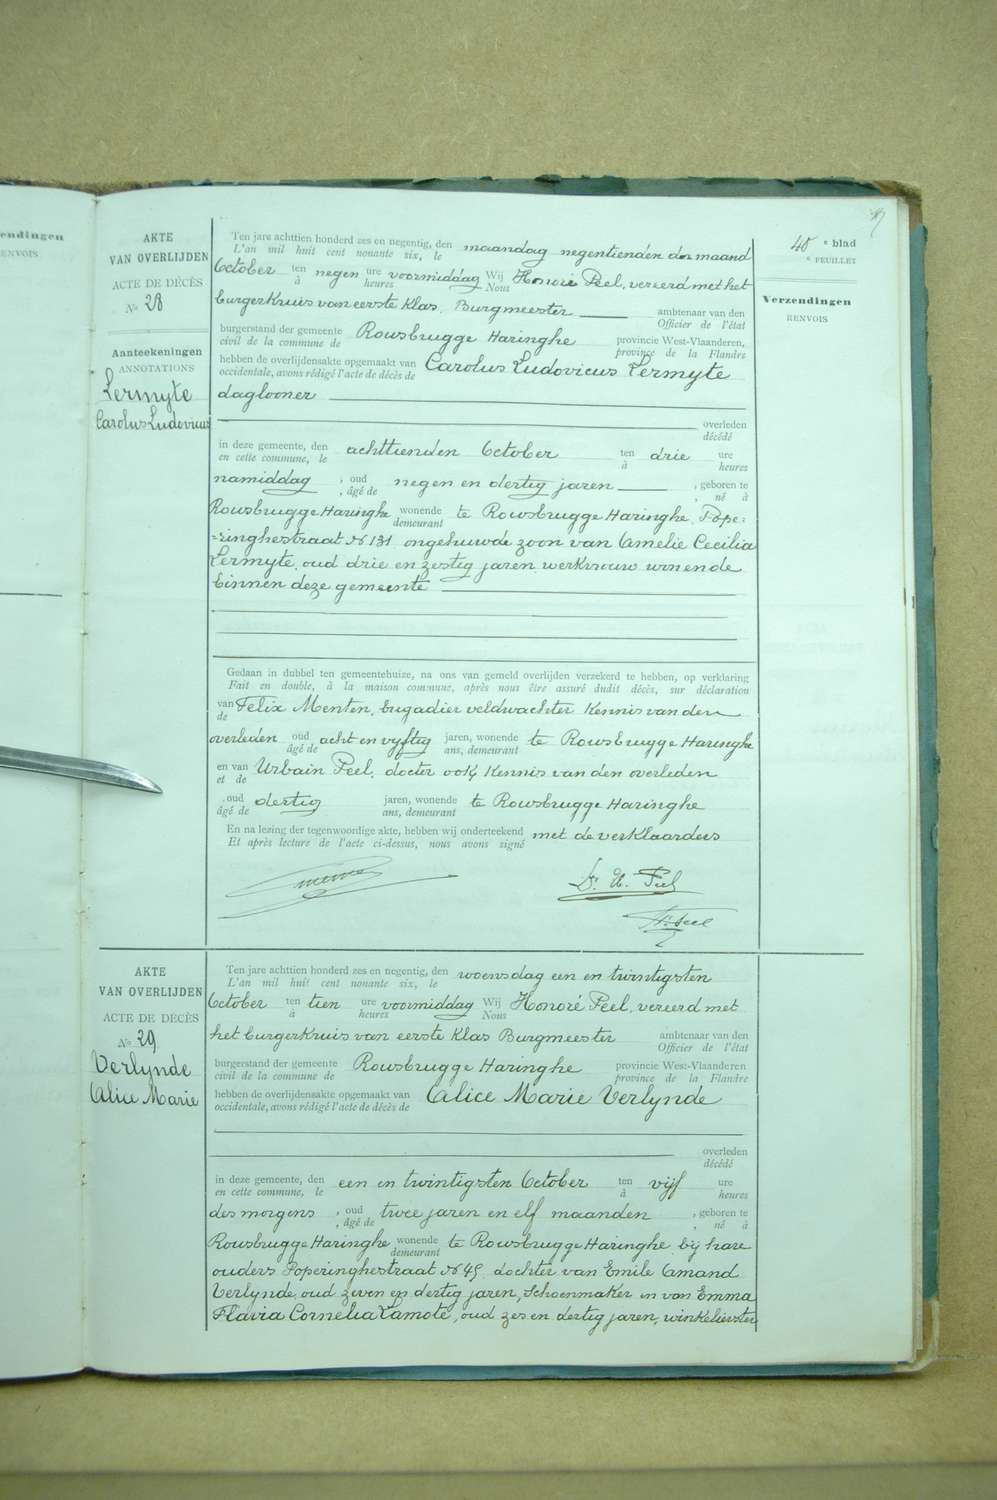 endingen
ENVOIS
40 e blad
e FEUILLET
Verzendingen
RENVOIS
AKTE
VAN OVERLIJDEN
ACTE DE DÉCÈS
No 28
Aanteekeningen
ANNOTATIONS
Lermyte
Carolus Ludovicus
Ten jare achttien honderd zes en negentig, den maandag negentienden der maand
L'an mil huit cent nonante six, le
October ten negen ure voormiddag Wij Honoré Peel, vereerd met het
à heures Nous
burgerkruis van eerste Klas, Burgmeester ambtenaar van den
Officier de l'état
burgerstand der gemeente Rousbrugge Haringhe provincie West-Vlaanderen,
civil de la commune de province de la Flandre
hebben de overlijdensakte opgemaakt van Carolus Ludovicus Lermyte
occidentale, avons rédigé l'acte de décès de
daglooner
overleden
décédé
in deze gemeente, den achttienden October ten drie ure
en cette commune, le à heures
namiddag , oud negen en dertig jaren , geboren te
, âgé de , né à
Rousbrugge Haringhe wonende te Rousbrugge Haringhe, Pope=
demeurant
=ringhestraat No 131 ongehuwde zoon van Amelie Cecilia
Lermyte, oud drie en zestig jaren, werkvrouw wonende
binnen deze gemeente
Gedaan in dubbel ten gemeentehuize, na ons van gemeld overlijden verzekerd te hebben, op verklaring
Fait en double, à la maison commune, après nous être assuré dudit décès, sur déclaration
van Felix Menten, brigadier veldwachter Kennis van den
de
overleden oud acht en vyftig jaren, wonende te Rousbrugge Haringhe
âgé de ans, demeurant
en van Urbain Peel, docter ook Kennis van den overleden
et de
, oud dertig jaren, wonende te Rousbrugge Haringhe
âgé de ans, demeurant
En na lezing der tegenwoordige akte, hebben wij onderteekend met de verklaarders
Et après lecture de l'acte ci-dessus, nous avons signé
Dr. U. Peel
H. Peel
AKTE
VAN OVERLIJDEN
ACTE DE DÉCÈS
No 29
Verlynde
Alice Marie
Ten jare achttien honderd zes en negentig, den woensdag een en twintigsten
L'an mil huit cent nonante six, le
October ten tien ure voormiddag Wij Honoré Peel, vereerd met
à heures Nous
het burgerkruis van eerste Klas Burgmeester ambtenaar van den
Officier de l'état
burgerstand der gemeente Rousbrugge Haringhe provincie West-Vlaanderen
civil de la commune de province de la Flandre
hebben de overlijdensakte opgemaakt van Alice Marie Verlynde
occidentale, avons rédigé l'acte de décès de
overleden
décédé
in deze gemeente, den een en twintigsten October ten vijf ure
en cette commune, le à heures
des morgens , oud twee jaren en elf maanden , geboren te
, âgé de , né à
Rousbrugge Haringhe wonende te Rousbrugge Haringhe, bij hare
demeurant
ouders Poperinghestraat No 45 dochter van Emile Amand
Verlynde, oud zeven en dertig jaren, Schoenmaker en van Emma
Flavia Cornelia Lamote, oud zes en dertig jaren, winkelierster